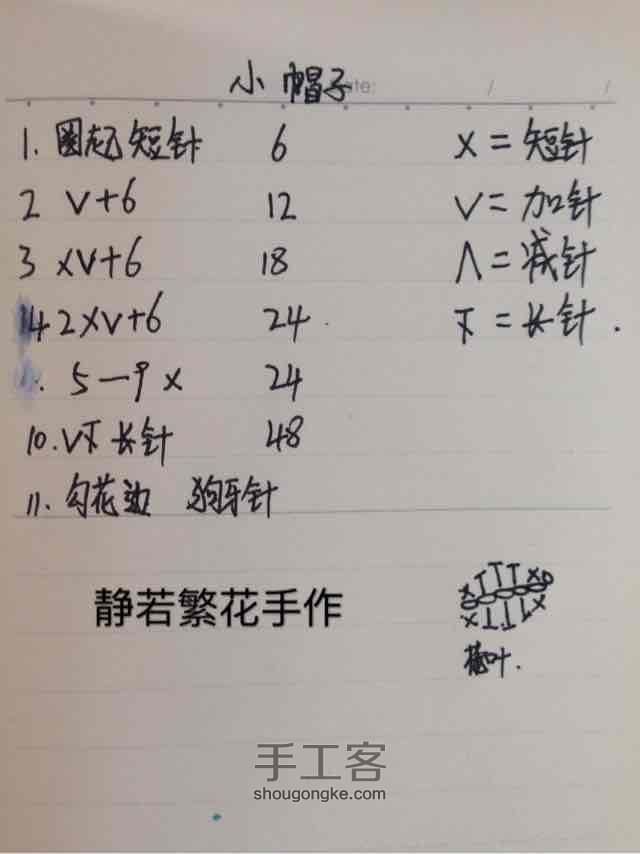 小帽子
Date: / /
1. 圈起短针 6 X = 短针
2 V+6 12 V = 加针
3 XV+6 18 Λ = 减针
4 2XV+6 24 下 = 长针.
5—9 X 24
10. V下 长针 48
11. 勾花边 狗牙针
静若繁花手作
叶.
手工客
shougongke.com